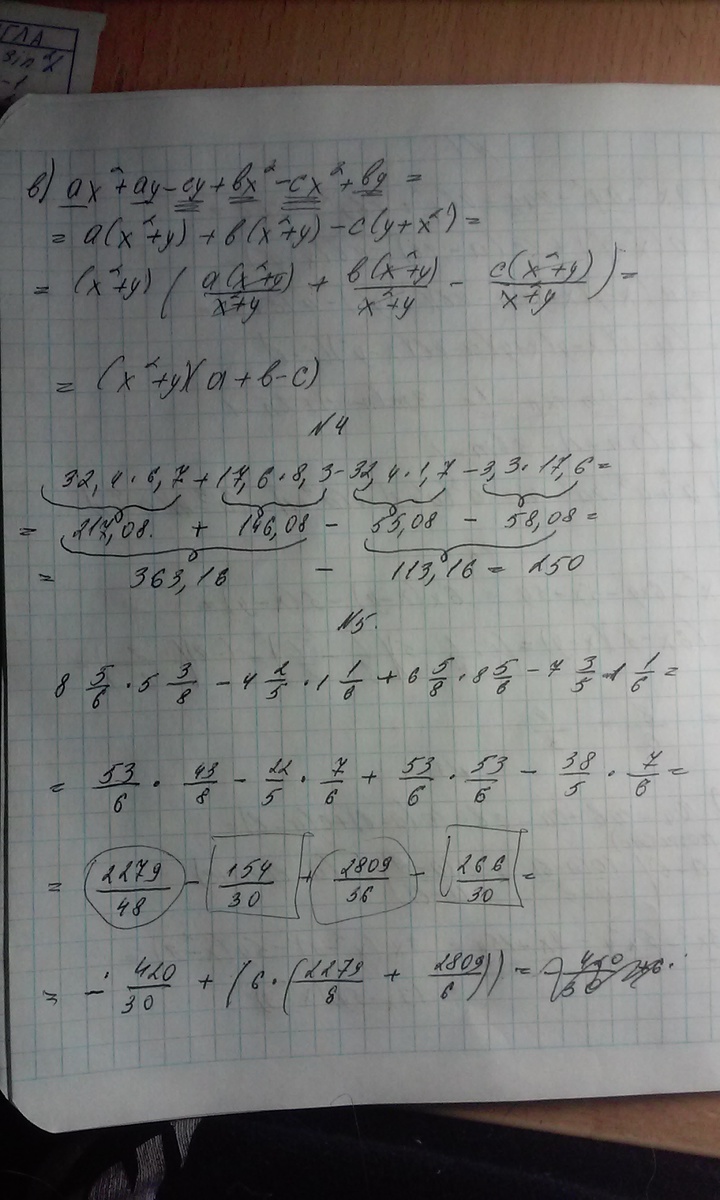 ГЛА
sin α
-1
в) ax²+ay-cy+bx²-cx²+by =
= a(x²+y) + b(x²+y) - c(y+x²) =
= (x²+y) ( a(x²+y)/x²+y + b(x²+y)/x²+y - c(x²+y)/x²+y ) =
= (x²+y)(a+b-c)
№4
32,4·6,7+17,6·8,3-32,4·1,7-3,3·17,6=
= 217,08. + 146,08 - 55,08 - 58,08 =
= 363,16 - 113,16 = 250
№5.
8 5/6 · 5 3/8 - 4 2/5 · 1 1/6 + 6 5/8 · 8 5/6 - 7 3/5 · 1 1/6 =
= 53/6 · 43/8 - 22/5 · 7/6 + 53/6 · 53/6 - 38/5 · 7/6 =
= 2279/48 - 154/30 + 2809/36 - 266/30 =
= - 420/30 + (6·(2279/8 + 2809/6)) =